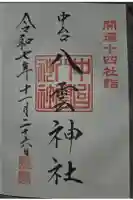 開運十四社詣
中台
八雲神社
令和七年十一月二十六日